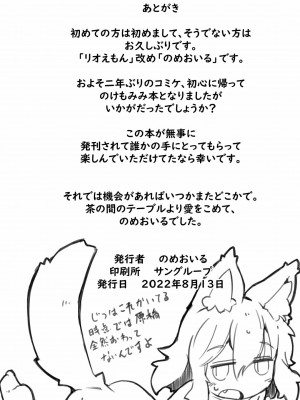 あとがき
初めての方は初めまして、そうでない方は
お久しぶりです。
「リオえもん」改め「のめおいる」です。
およそ二年ぶりのコミケ、初心に帰って
のけもみみ本となりましたが
いかがだったでしょうか?
この本が無事に
発刊されて誰かの手にとってもらって
楽しんでいただけてたなら幸いです。
それでは機会があればいつかまたどこかで。
茶の間のテーブルより愛をこめて、
のめおいるでした。
発行者 のめおいる
印刷所 サングループ
発行日 2022年8月13日
じつはこれかいてる
時点では原稿
全然かわって
ないんですよ